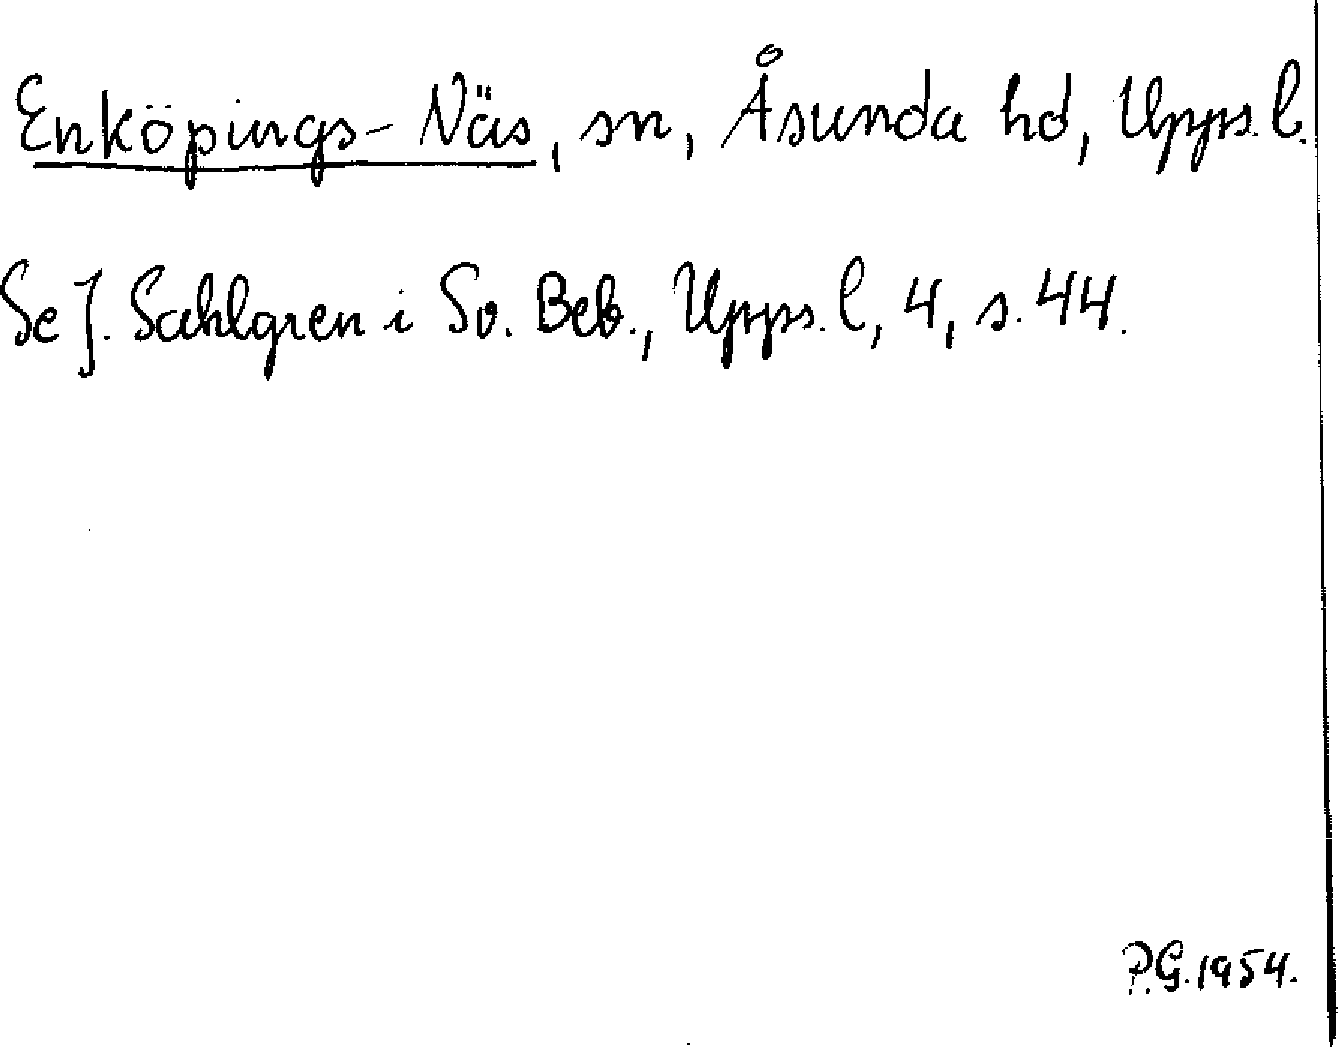 Enköpings-Näs, sn, Åsunda hd, Upps. l.
Se J. Sahlgren i Sv. Beb., Upps. l, 4, s. 44.
P.G. 1954.